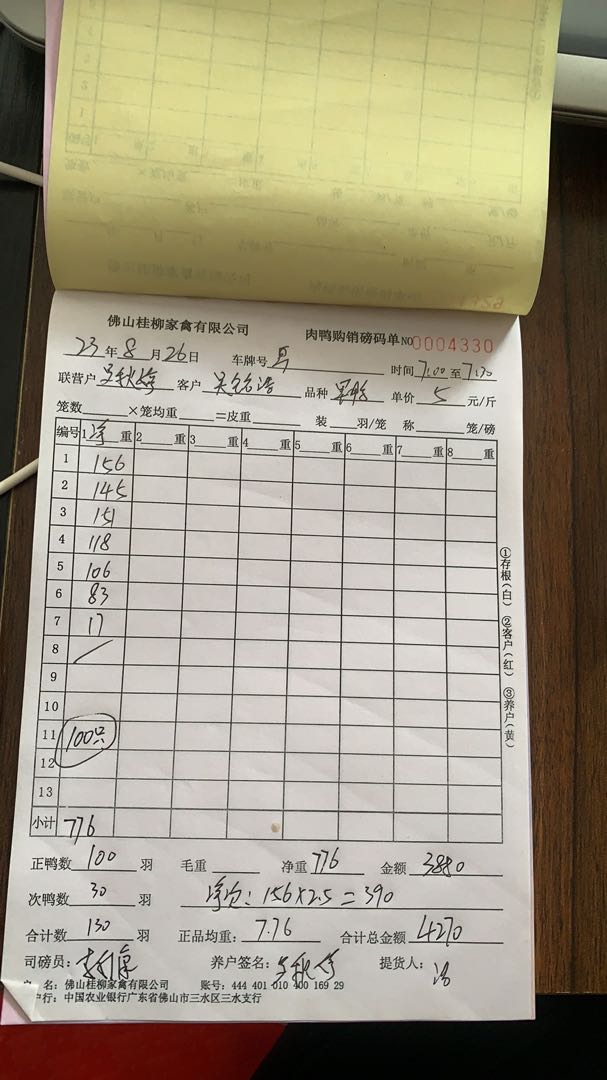 佛山桂柳家禽有限公司 肉鸭购销磅码单 NO 0004330
23年8月26日 车牌号 时间7:00至7:30
联营户 客户 品种 单价5元/斤
笼数 ×笼均重 =皮重 装 羽/笼 称 笼/磅
编号 1净重 2 重 3 重 4 重 5 重 6 重 7 重 8 重
1 156
2 145
3 151
4 118
5 106
6 83
7 17
8 /
9
10
11 100只
12
13
小计 776
正鸭数100羽 毛重 净重776 金额3880
次鸭数30羽 净次:156×2.5=390
合计数130羽 正品均重:7.76 合计总金额4270
司磅员: 养户签名: 提货人:
名:佛山桂柳家禽有限公司 账号:444 401 010 400 169 29
户行:中国农业银行广东省佛山市三水区三水支行
①存根(白) ②客户(红) ③养户(黄)